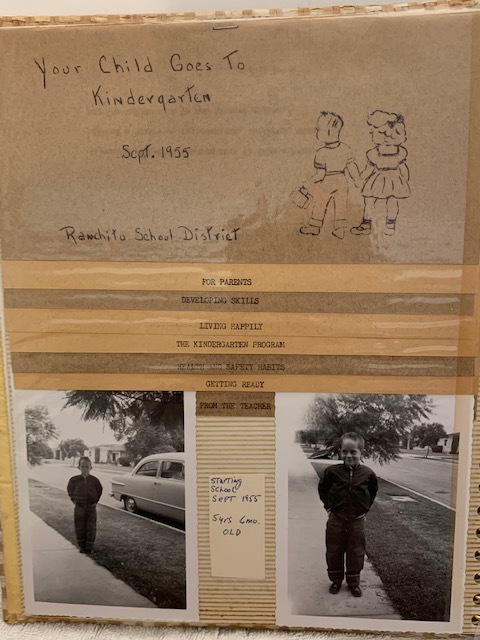 Your Child Goes To
Kindergarten
Sept. 1955
Ranchito School District
FOR PARENTS
DEVELOPING SKILLS
LIVING HAPPILY
THE KINDERGARTEN PROGRAM
HEALTH AND SAFETY HABITS
GETTING READY
FROM THE TEACHER
STARTING
School
SEPT 1955
5yrs 6mo.
OLD